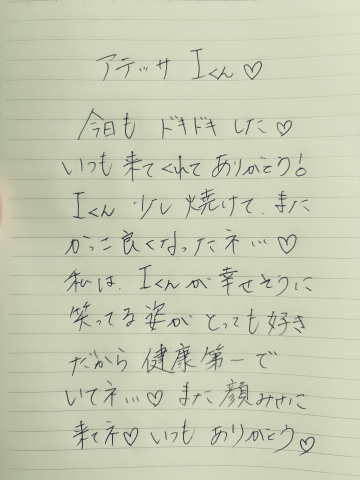 アテッサ Iくん♡
今日も ドキドキ した♡
いつも 来てくれて ありがとう!
Iくん 少し 焼けて、また
かっこ良くなったネ…♡
私は、Iくんが 幸せそうに
笑ってる 姿が とっても 好き
だから 健康第一で
いてネ…♡ また 顔 みせに
来てネ♡ いつも ありがとう♡